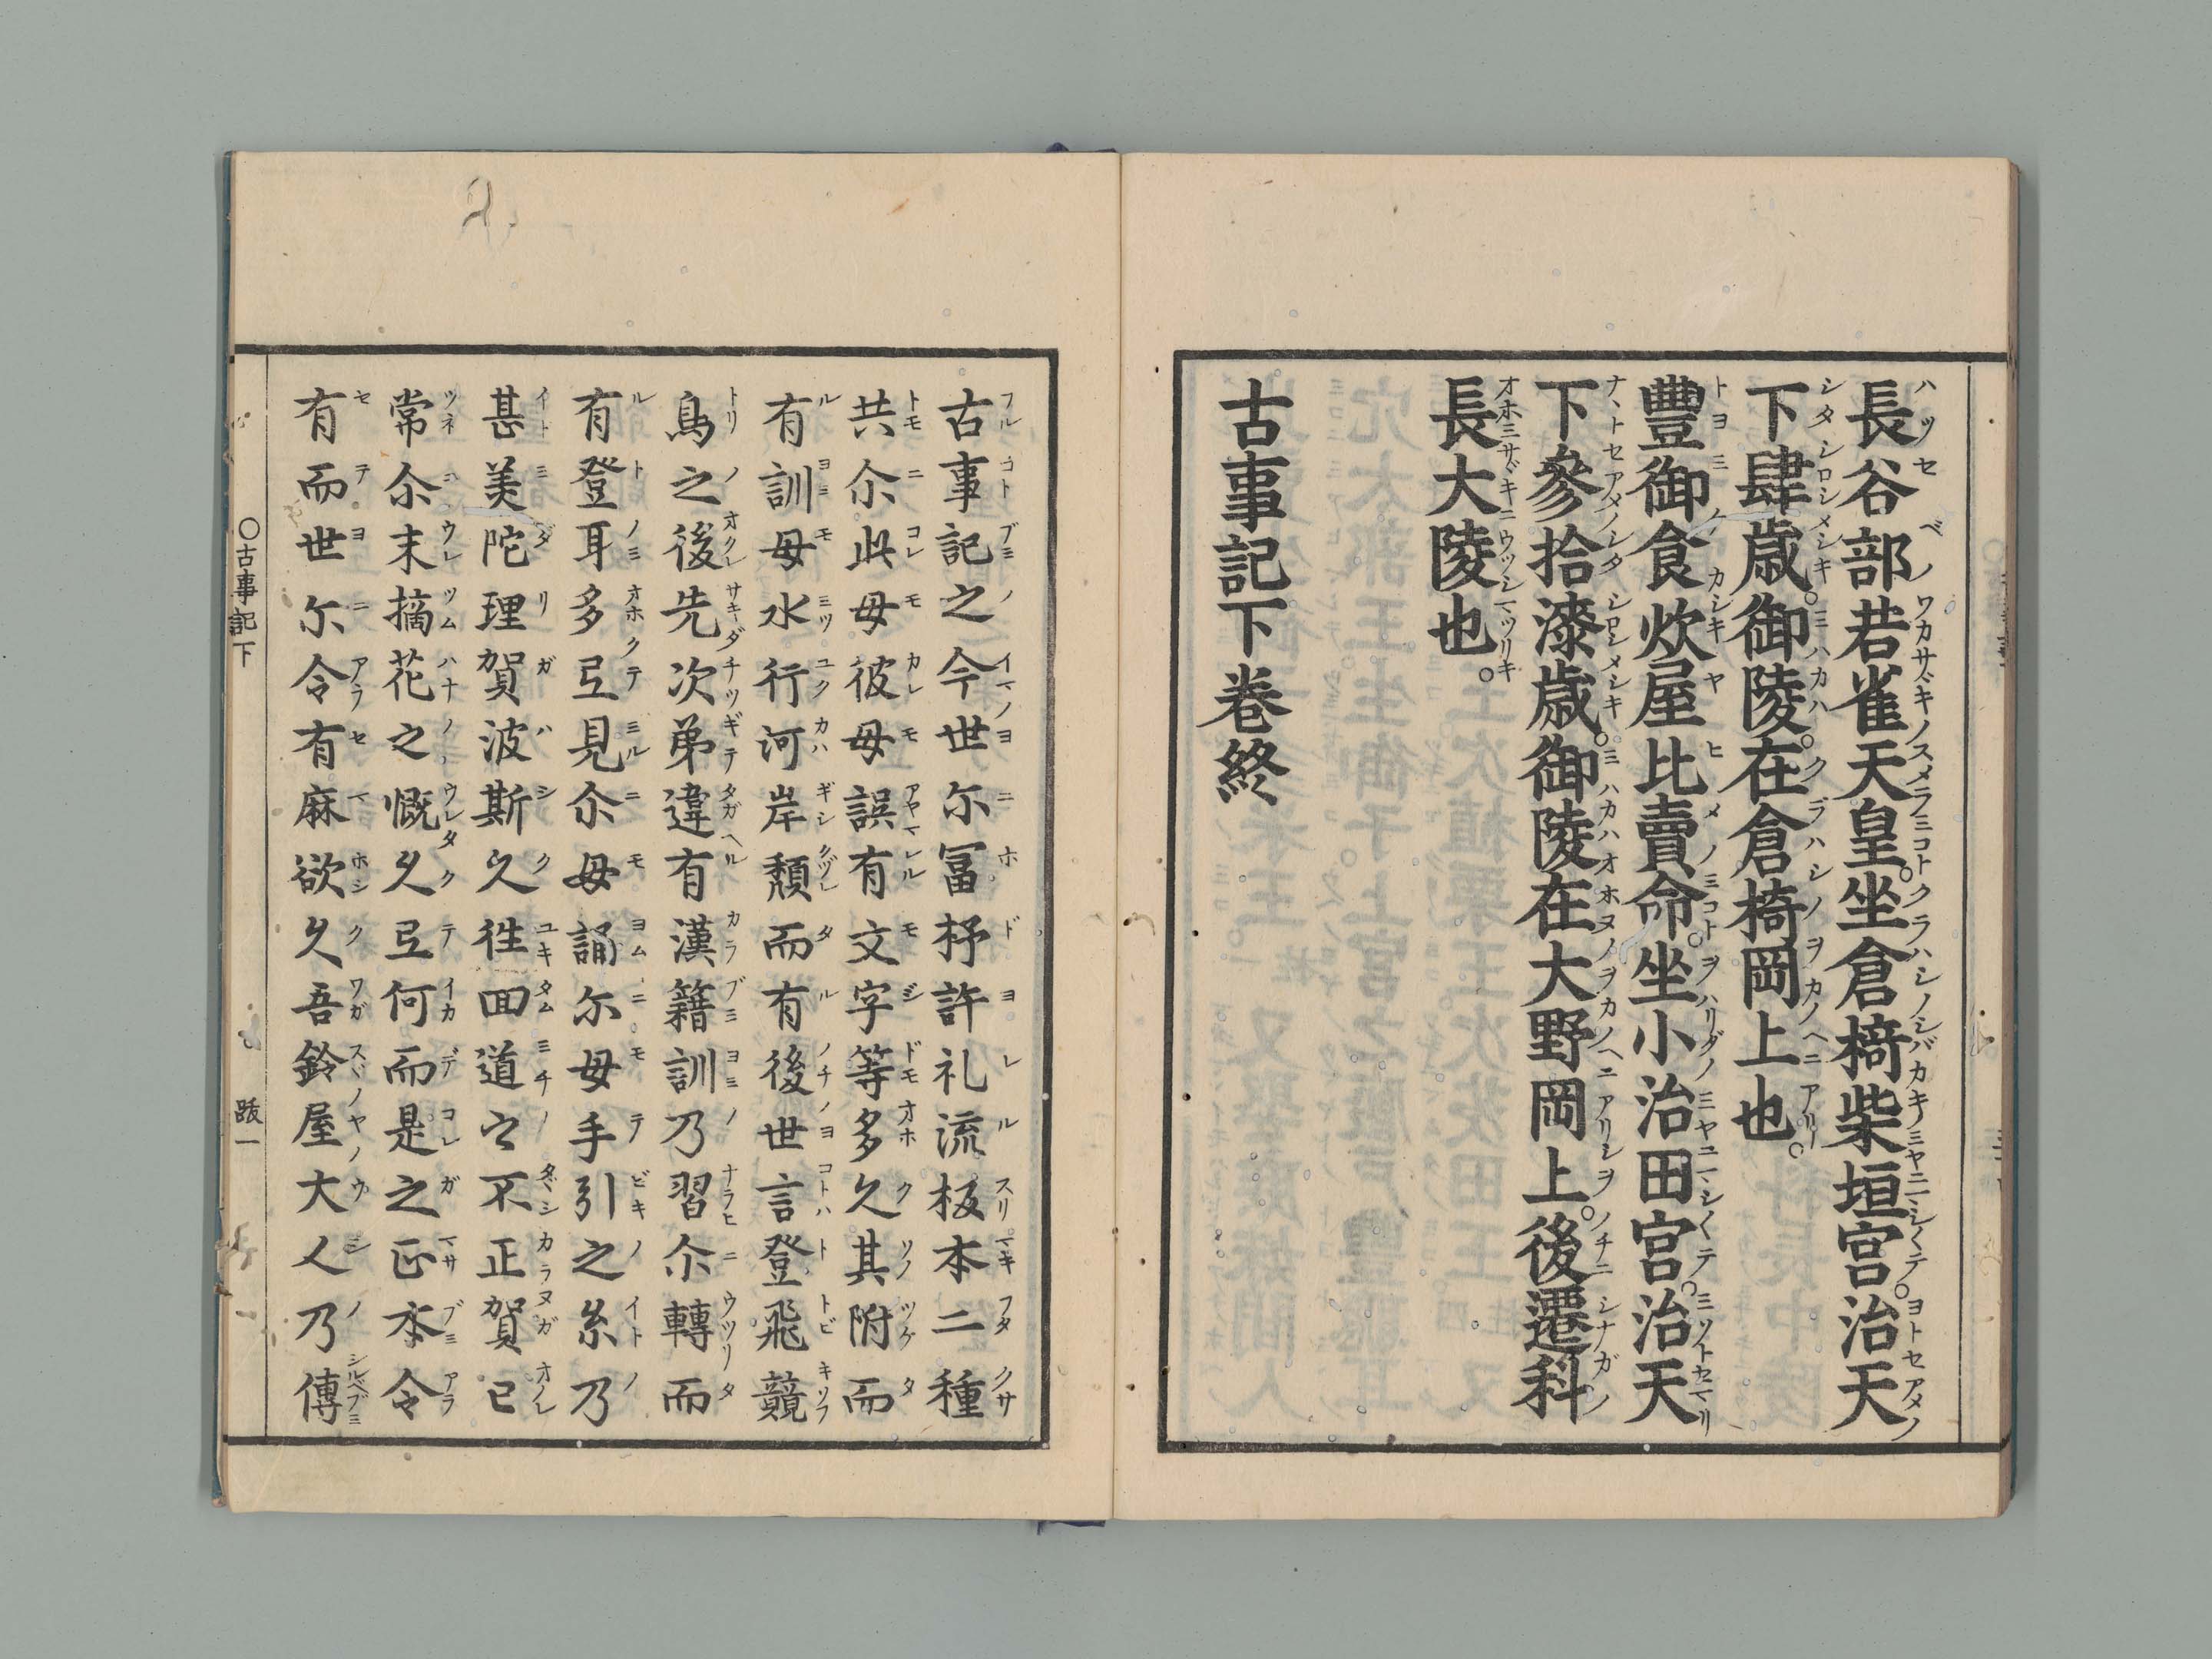 長谷部若雀天皇。坐倉椅柴垣宮。治天
下肆歳。御陵。在倉椅岡上也。
豐御食炊屋比賣命。坐小治田宮。治天
下參拾漆歳。御陵在大野岡上。後遷科
長大陵也。
古事記下卷終
古事記之今世尓冨杼許礼流板本二種
共尒此毋彼毋誤有文字等多久其附而
有訓毋水行河岸頽而有後世言登飛競
鳥之後先次弟違有漢籍訓乃習尒轉而
有登耳多弖見尒毋誦尓毋手引之糸乃
甚美陀理賀波斯久徃回道之不正賀已
常尒末摘花之慨久弖何而是之正本令
有而世尓令有麻欲久吾鈴屋大人乃傳
○古事記下 跋一